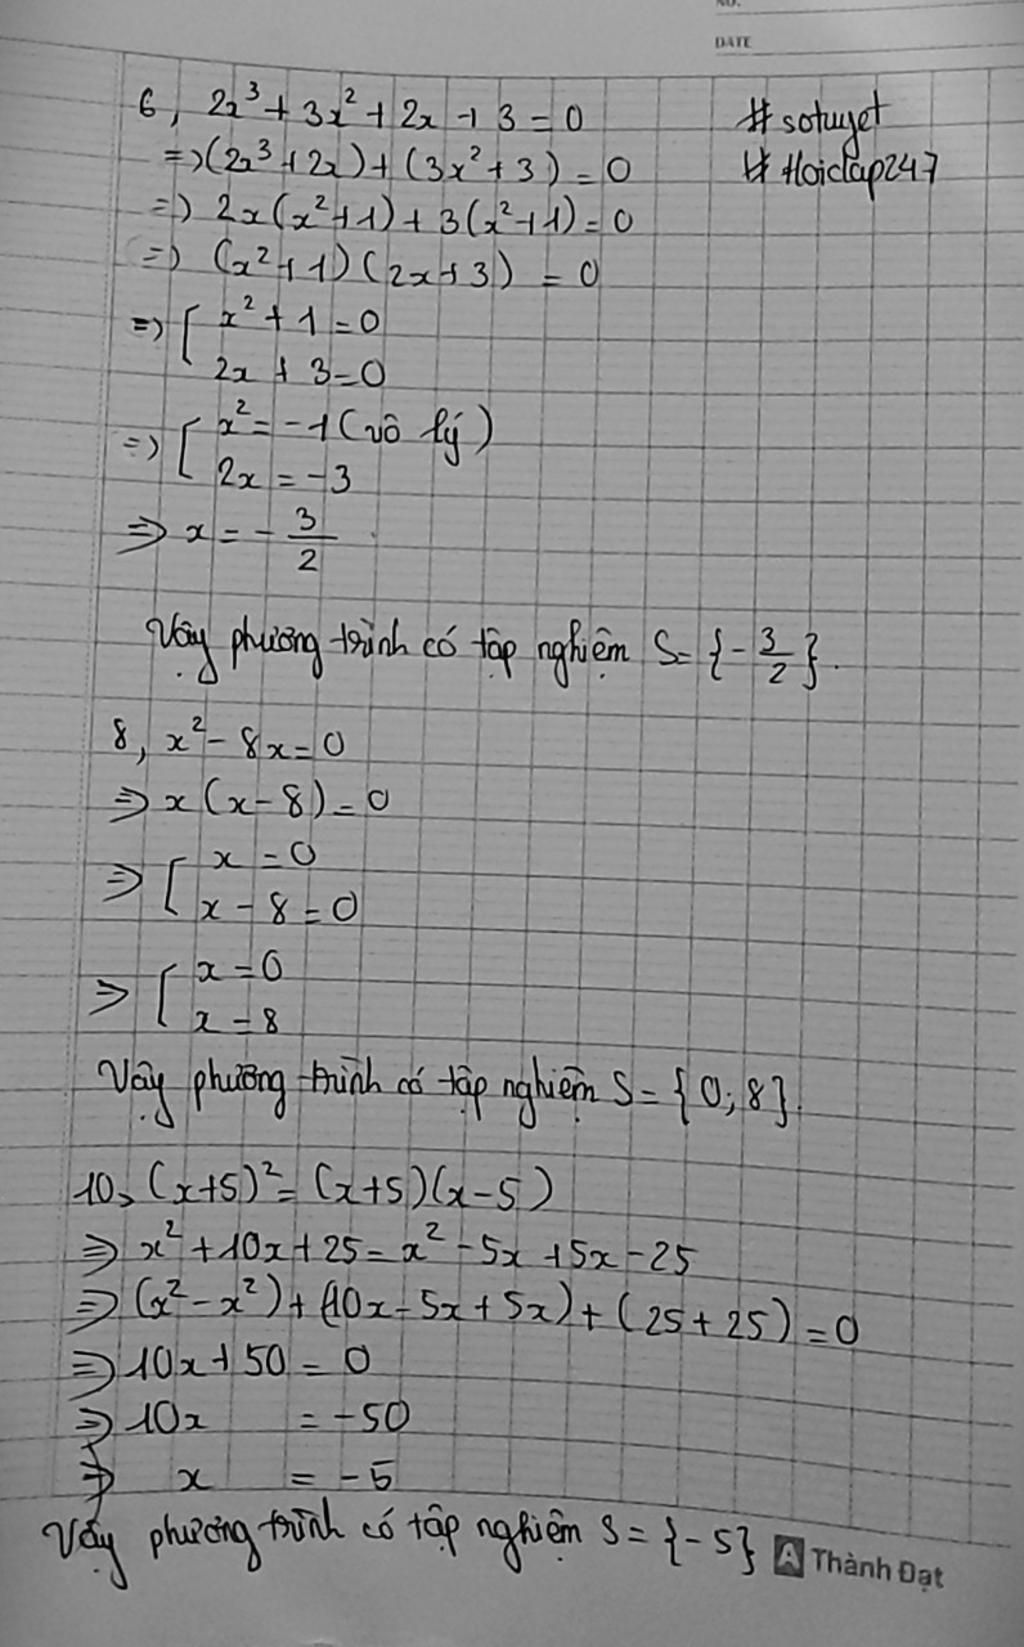 NO.
DATE
6, 2x³ + 3x² + 2x + 3 = 0 # sotuyet
=> (2x³ + 2x) + (3x² + 3) = 0 # Hoidap247
=> 2x(x² + 1) + 3(x² + 1) = 0
=> (x² + 1)(2x + 3) = 0
=> [ x² + 1 = 0
2x + 3 = 0
=> [ x² = -1 (vô lý)
2x = -3
=> x = - 3/2
Vậy phương trình có tập nghiệm S = {- 3/2}.
8, x² - 8x = 0
=> x(x - 8) = 0
=> [ x = 0
x - 8 = 0
=> [ x = 0
x = 8
Vậy phương trình có tập nghiệm S = {0; 8}.
10, (x+5)² = (x+5)(x-5)
=> x² + 10x + 25 = x² - 5x + 5x - 25
=> (x² - x²) + (10x - 5x + 5x) + (25 + 25) = 0
=> 10x + 50 = 0
=> 10x = -50
=> x = -5
Vậy phương trình có tập nghiệm S = {-5}
A Thành Đạt